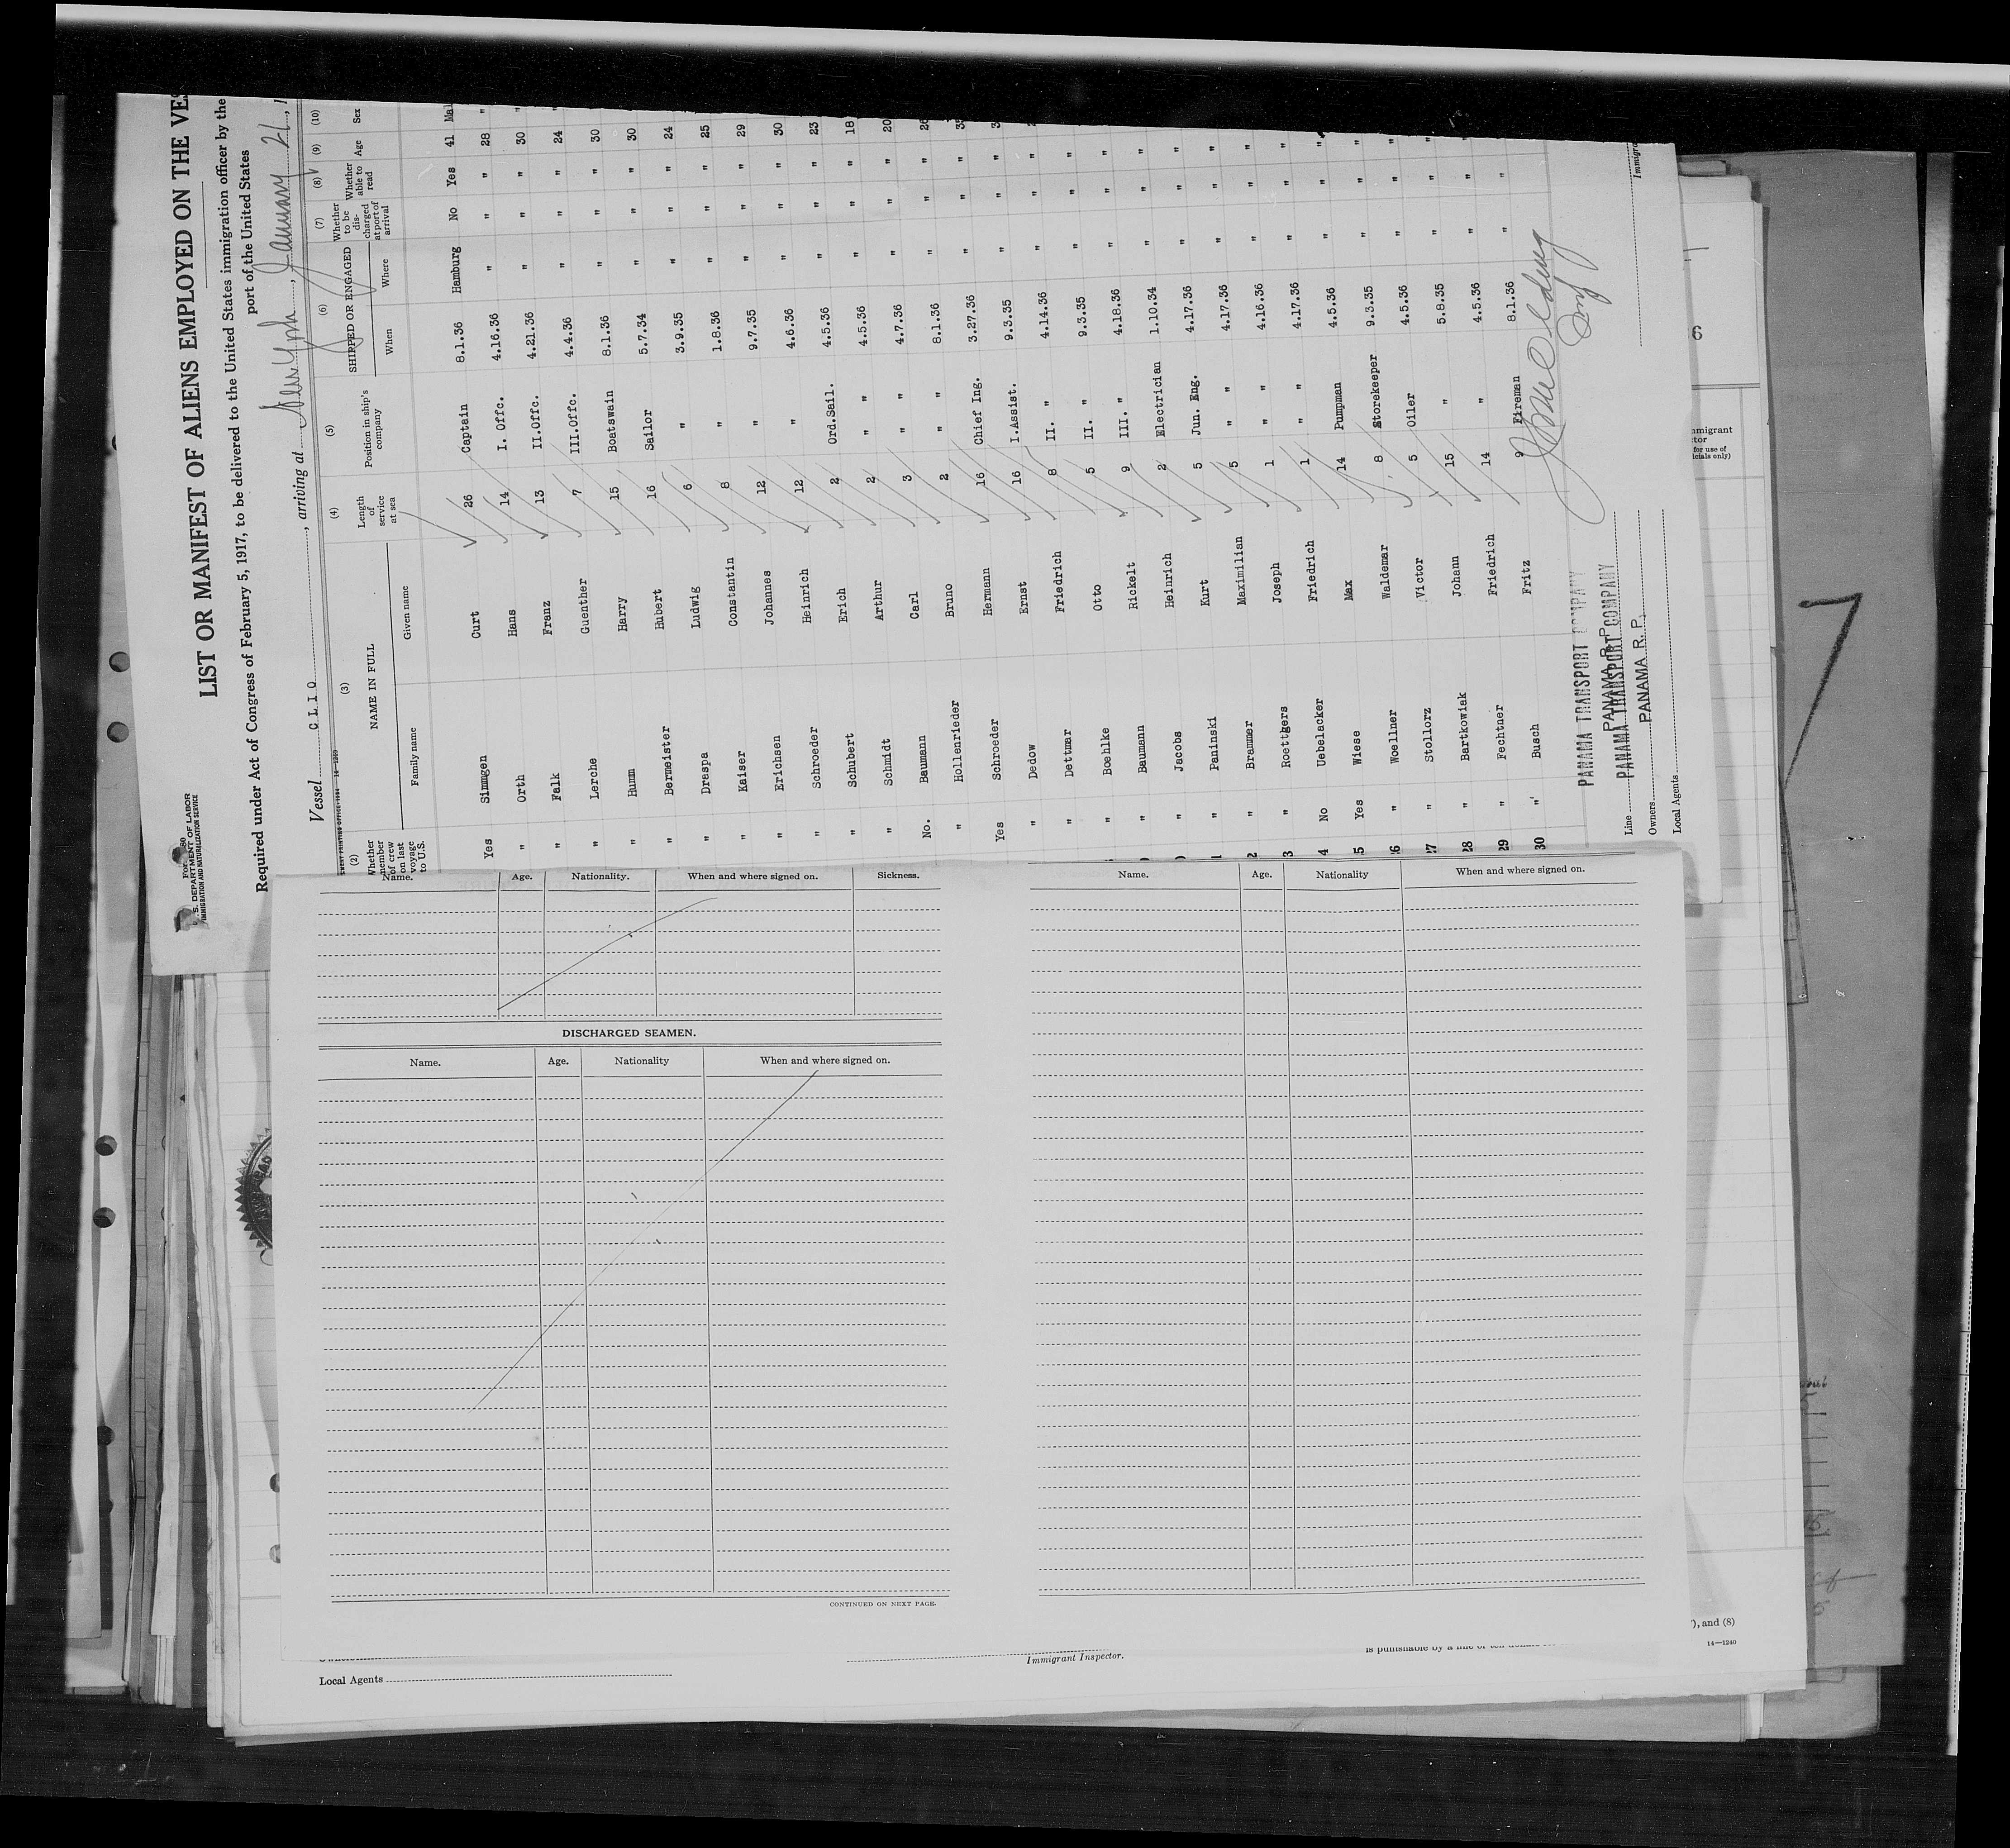 Form 680
U. S. DEPARTMENT OF LABOR
IMMIGRATION AND NATURALIZATION SERVICE
LIST OR MANIFEST OF ALIENS EMPLOYED ON THE VES
Required under Act of Congress of February 5, 1917, to be delivered to the United States immigration officer by the
port of the United States
Vessel CLIO, arriving at New York, January 21, 1
14—1240
(2) (3) (4) (5) (6) (7) (8) (9) (10)
Whether member of crew on last voyage to U.S. NAME IN FULL Family name Given name Length of service at sea Position in ship's company SHIPPED OR ENGAGED When Where Whether to be discharged at port of arrival Whether able to read Age Sex
Yes Simmgen Curt 26 Captain 8.1.36 Hamburg No Yes 41 Mal
" Orth Hans 14 I. Offc. 4.16.36 " " " 28 "
" Falk Franz 13 II.Offc. 4.21.36 " " " 30 "
" Lerche Guenther 7 III.Offc. 4.4.36 " " " 24 "
" Humm Harry 15 Boatswain 8.1.36 " " " 30
" Bermeister Hubert 16 Sailor 5.7.34 " " " 30
" Draspa Ludwig 6 " 3.9.35 " " " 24
" Kaiser Constantin 8 " 1.8.36 " " " 25
" Erichsen Johannes 12 " 9.7.35 " " " 29
" Schroeder Heinrich 12 " 4.6.36 " " " 30
" Schubert Erich 2 Ord.Sail. 4.5.36 " " " 23
" Schmidt Arthur 2 " " 4.5.36 " " " 18
No. Baumann Carl 3 " " 4.7.36 " " " 20
" Hollenrieder Bruno 2 " " 8.1.36 " " " 26
Yes Schroeder Hermann 16 Chief Ing. 3.27.36 " " "
" Dedow Ernst 16 I.Assist. 9.3.35 " " "
" Dettmar Friedrich 8 II. " 4.14.36 " " "
" Boehlke Otto 5 II. " 9.3.35 " " "
" Baumann Rickelt 9 III. " 4.18.36 " " "
" Jacobs Heinrich 2 Electrician 1.10.34 " " "
1 " Paninski Kurt 5 Jun. Eng. 4.17.36 " " "
2 " Brammer Maximilian 5 " " 4.17.36 " " "
3 " Roettgers Joseph 1 " " 4.16.36 " " "
4 No Uebelacker Friedrich 1 " " 4.17.36 " " "
5 Yes Wiese Max 14 Pumpman 4.5.36 " " "
26 " Woellner Waldemar 8 Storekeeper 9.3.35 " " "
27 " Stollorz Victor 5 Oiler 4.5.36 " " "
28 " Bartkowiak Johann 15 " 5.8.35 " " "
29 " Fechtner Friedrich 14 " 4.5.36 " " "
30 " Busch Fritz 9 Fireman 8.1.36 " " "
PANAMA TRANSPORT COMPANY
PANAMA R. P.
Line PANAMA TRANSPORT COMPANY
Owners PANAMA R. P.
Local Agents
Immigra
Name. Age. Nationality. When and where signed on. Sickness.
DISCHARGED SEAMEN.
Name. Age. Nationality When and where signed on.
CONTINUED ON NEXT PAGE.
Name. Age. Nationality When and where signed on.
Local Agents
Immigrant Inspector.
), and (8)
14—1240
6
7